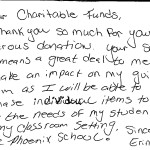 Charitable Funds,
hank you so much for you
rous donation. Your s
means a great deal to me
ake an impact on my
m as I will be able to
hase individual items to
the needs of my studen
my classroom setting,
Phoenix School! Sinc
Erin